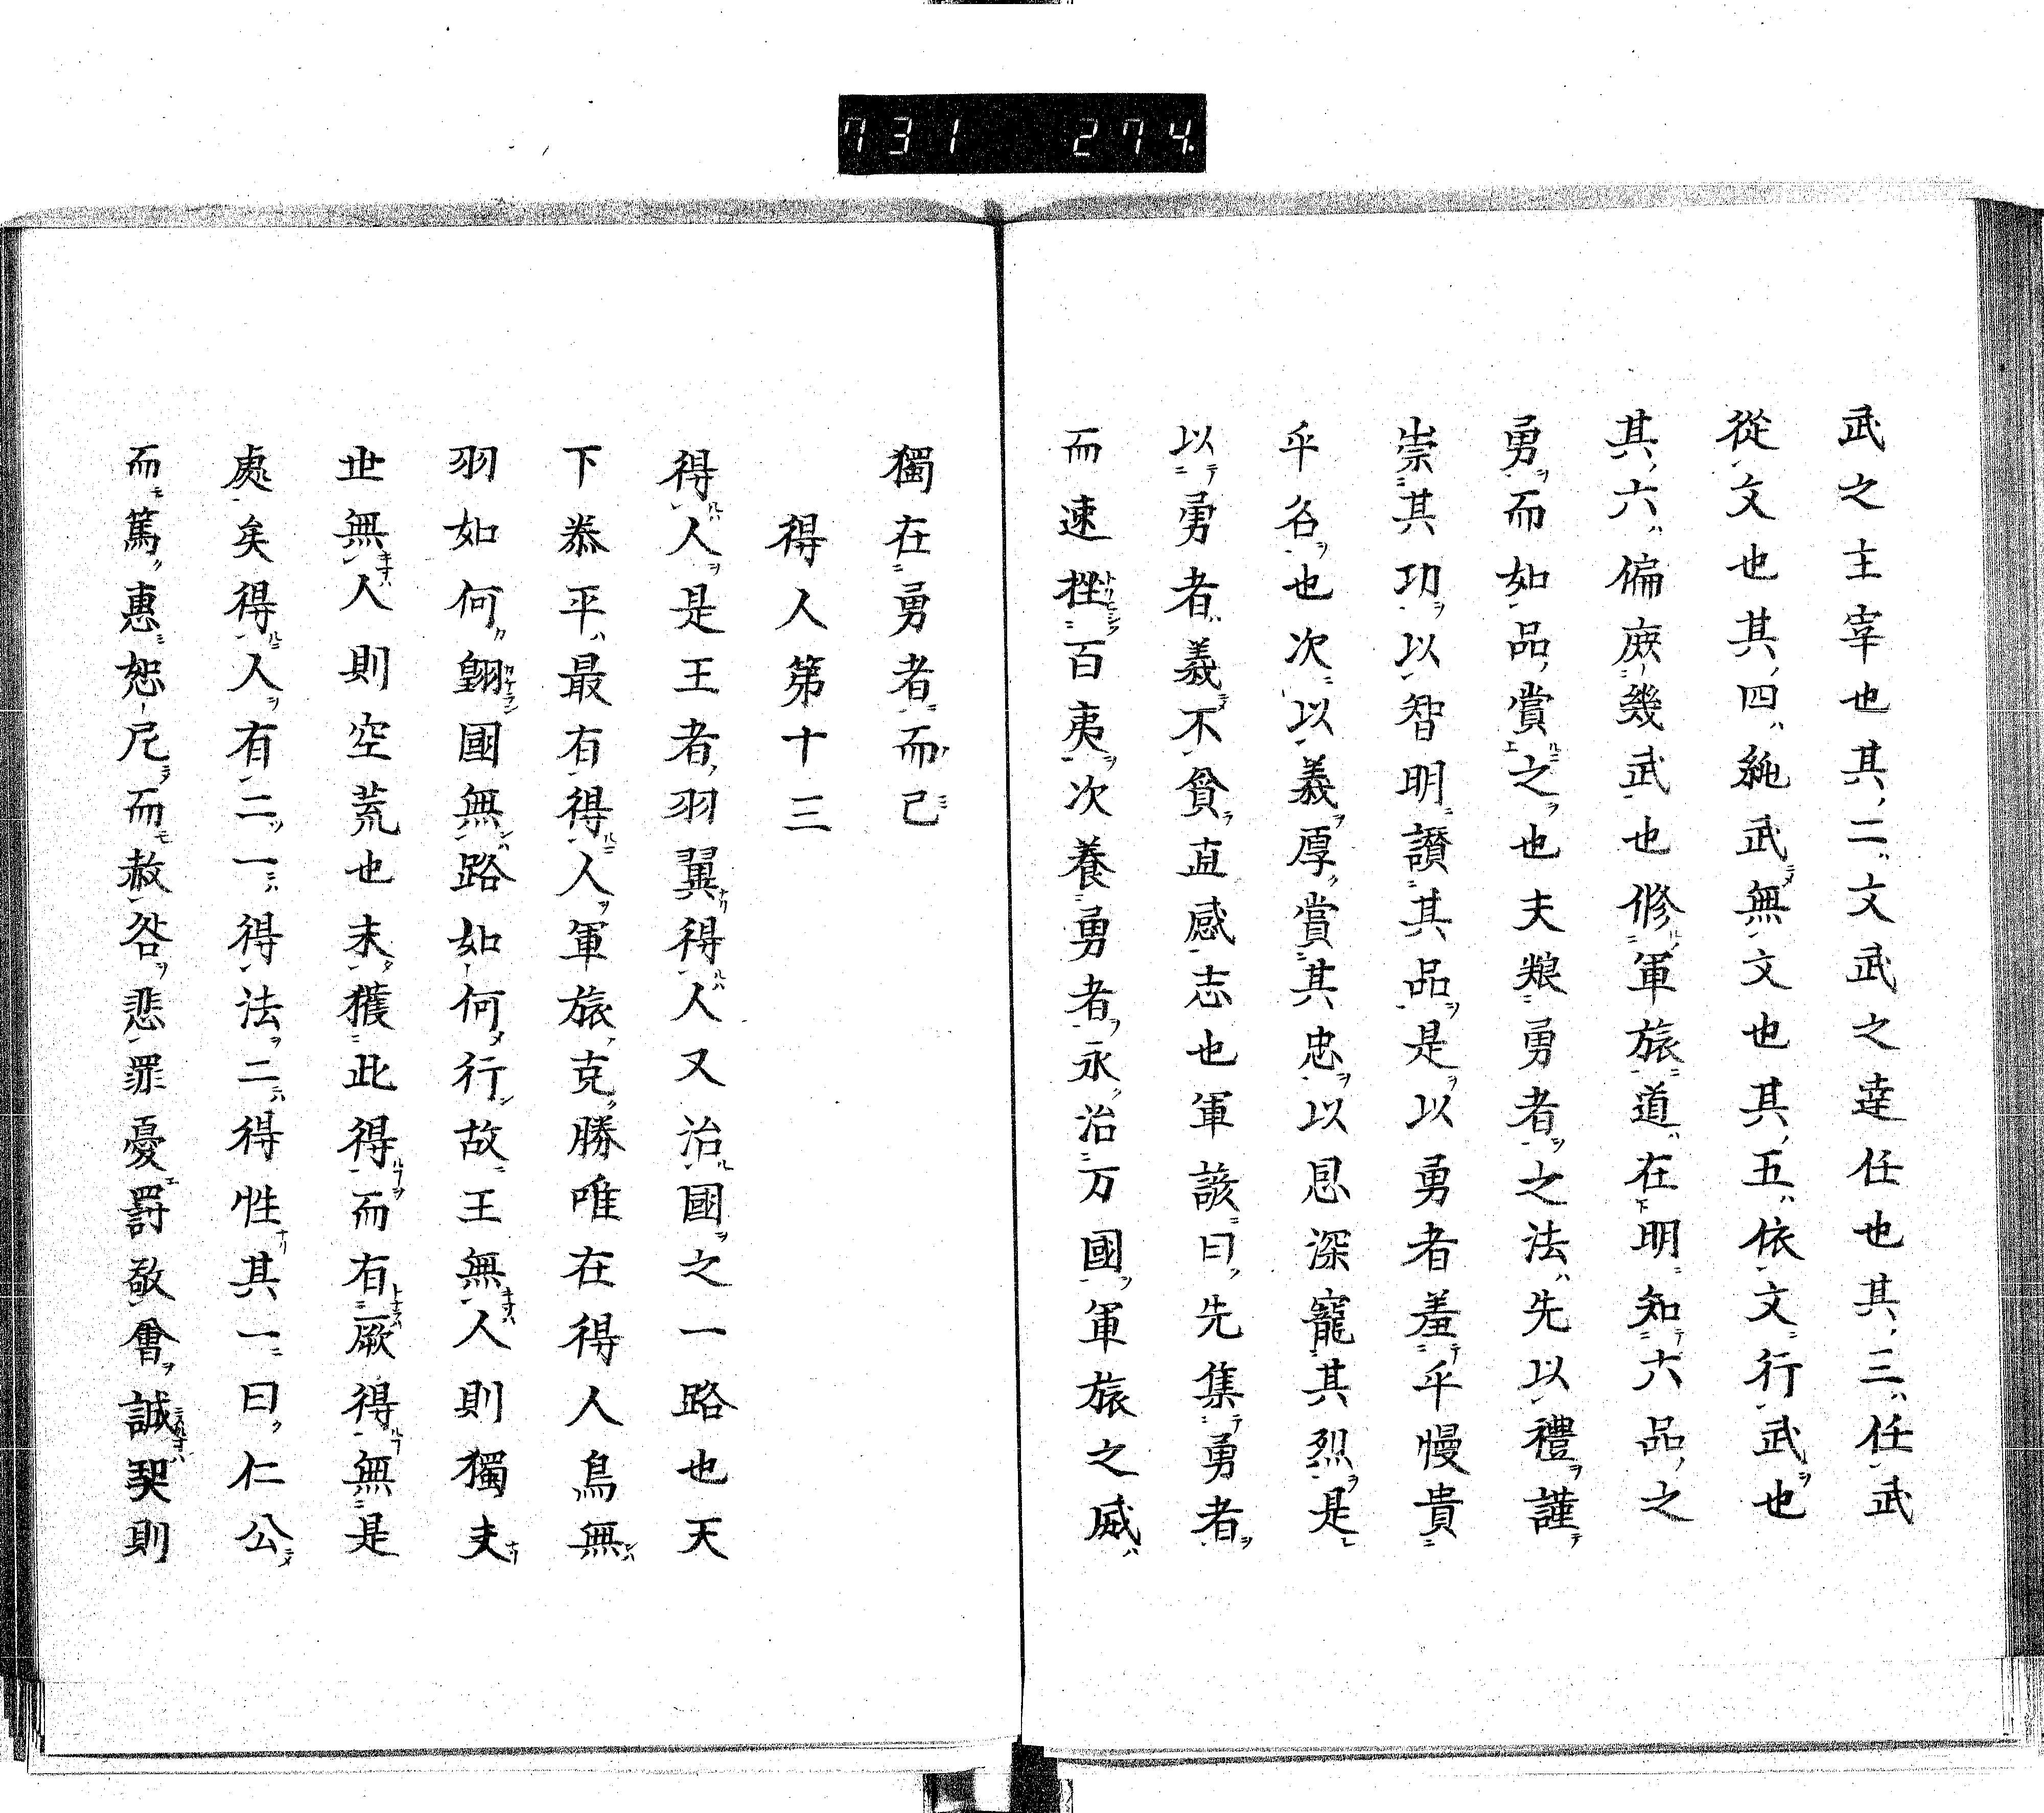 731 274
武之主宰也其二文武之達任也其三任武
從文也其四純武無文也其五依文行武也
其六偏庶幾武也修軍旅道在明知六品之
勇而如品賞之也夫粮勇者之法先以禮謹
崇其功以智明讃其品是以勇者羞乎慢貴
乎名也次以義厚賞其忠以恩深寵其烈是
以勇者義不貧直感志也軍該曰先集勇者
而速挫百夷次養勇者永治万國軍旅之威
獨在勇者而已
得人第十三
得人是王者羽翼得人又治國之一路也天
下泰平最有得人軍旅克勝唯在得人鳥無
羽如何翺國無路如何行故王無人則獨夫
世無人則空荒也未獲此得而有厥得無是
處矣得人有二一得法二得性其一曰仁公
而篤惠恕尼而赦咎悲罪憂罸敬會誠契則